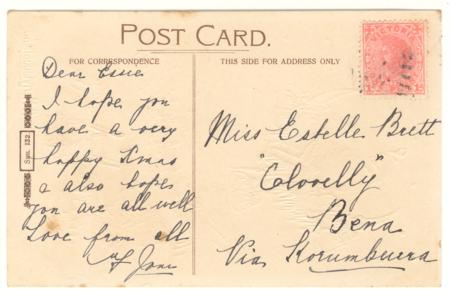 POST CARD.
FOR CORRESPONDENCE
THIS SIDE FOR ADDRESS ONLY
VICTORIA
Dear Essie
I hope you
have a very
happy Xmas
& also hope
you are all well
Love from all
Miss Estelle Brett
"Clovelly"
Bena
Via Korumburra
Syn. 132